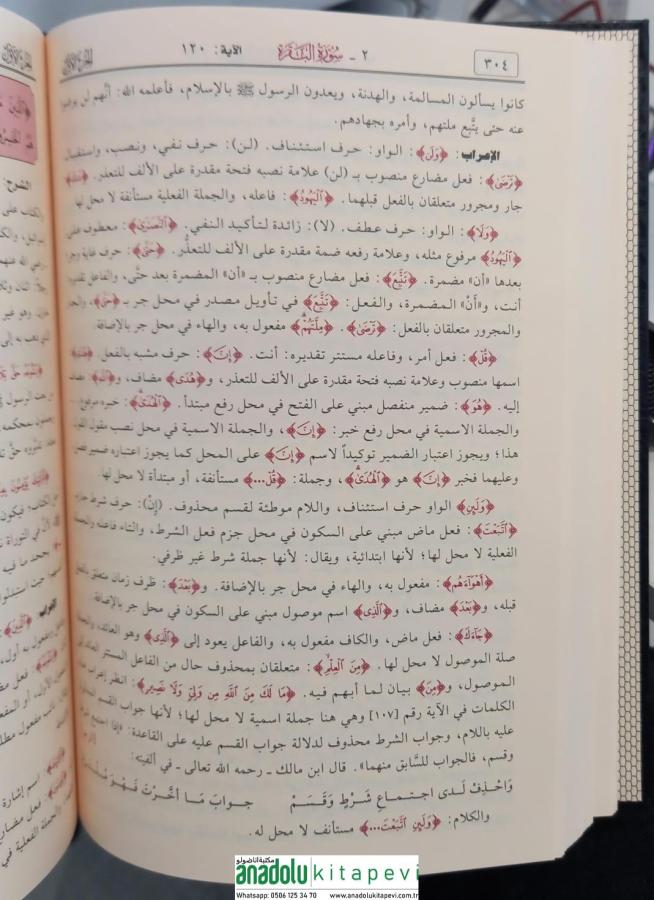 ٣٠٤
٢ - سورة البقرة
الآية: ١٢٠
الجزء الأول
كانوا يسألون المسالمة، والهدنة، ويعدون الرسول ﷺ بالإسلام، فأعلمه الله: أنهم لن يرضوا
عنه حتى يتَّبع ملتهم، وأمره بجهادهم.
الإعراب: ﴿وَلَن﴾: الواو: حرف استئناف. (لن): حرف نفي، ونصب، واستقبال
﴿تَرْضَىٰ﴾: فعل مضارع منصوب بـ (لن) علامة نصبه فتحة مقدرة على الألف للتعذر. ﴿عَنكَ﴾
جار ومجرور متعلقان بالفعل قبلهما. ﴿الْيَهُودُ﴾: فاعله، والجملة الفعلية مستأنفة لا محل لها
﴿وَلَا﴾: الواو: حرف عطف. (لا): زائدة لتأكيد النفي. ﴿النَّصَارَىٰ﴾: معطوف على
﴿الْيَهُودُ﴾ مرفوع مثله، وعلامة رفعه ضمة مقدرة على الألف للتعذُّر. ﴿حَتَّىٰ﴾: حرف غاية وجر
بعدها «أن» مضمرة. ﴿تَتَّبِعَ﴾: فعل مضارع منصوب بـ «أن» المضمرة بعد حتَّى، والفاعل تقديره
أنت، و«أَنْ» المضمرة، والفعل: ﴿تَتَّبِعَ﴾ في تأويل مصدر في محل جر بـ ﴿حَتَّىٰ﴾، والجار
والمجرور متعلقان بالفعل: ﴿تَرْضَىٰ﴾. ﴿مِلَّتَهُمْ﴾ مفعول به، والهاء في محل جر بالإضافة.
﴿قُلْ﴾: فعل أمر، وفاعله مستتر تقديره: أنت. ﴿إِنَّ﴾: حرف مشبه بالفعل. ﴿هُدَى﴾
اسمها منصوب وعلامة نصبه فتحة مقدرة على الألف للتعذر، و﴿هُدَى﴾ مضاف، و﴿اللَّهِ﴾ مضاف
إليه. ﴿هُوَ﴾: ضمير منفصل مبني على الفتح في محل رفع مبتدأ. ﴿الْهُدَىٰ﴾: خبره مرفوع...
والجملة الاسمية في محل رفع خبر: ﴿إِنَّ﴾، والجملة الاسمية في محل نصب مقول القول
هذا؛ ويجوز اعتبار الضمير توكيداً لاسم ﴿إِنَّ﴾ على المحل كما يجوز اعتباره ضمير فصل
وعليهما فخبر ﴿إِنَّ﴾ هو ﴿الْهُدَىٰ﴾، وجملة: ﴿قُلْ...﴾ مستأنفة، أو مبتدأة لا محل لها.
﴿وَلَئِنِ﴾ الواو حرف استئناف، واللام موطئة لقسم محذوف. (إِنْ): حرف شرط جازم
﴿اتَّبَعْتَ﴾: فعل ماض مبني على السكون في محل جزم فعل الشرط، والتاء فاعله والجملة
الفعلية لا محل لها؛ لأنها ابتدائية، ويقال: لأنها جملة شرط غير ظرفي.
﴿أَهْوَاءَهُم﴾: مفعول به، والهاء في محل جر بالإضافة. و﴿بَعْدَ﴾: ظرف زمان متعلق بالفعل
قبله، و﴿بَعْدَ﴾ مضاف، و﴿الَّذِي﴾ اسم موصول مبني على السكون في محل جر بالإضافة.
﴿جَاءَكَ﴾: فعل ماض، والكاف مفعول به، والفاعل يعود إلى ﴿الَّذِي﴾ وهو العائد، والجملة
صلة الموصول لا محل لها. ﴿مِنَ الْعِلْمِ﴾: متعلقان بمحذوف حال من الفاعل المستتر العائد
الموصول، و﴿مِنَ﴾ بيان لما أبهم فيه. ﴿مَا لَكَ مِنَ اللَّهِ مِن وَلِيٍّ وَلَا نَصِيرٍ﴾: انظر إعراب هذه
الكلمات في الآية رقم [١٠٧] وهي هنا جملة اسمية لا محل لها؛ لأنها جواب القسم المدلول
عليه باللام، وجواب الشرط محذوف لدلالة جواب القسم عليه على القاعدة: «إذا اجتمع شرط
وقسم، فالجواب للسَّابق منهما». قال ابن مالك ـ رحمه الله تعالى ـ في ألفيته:
وَاحْذِفْ لَدى اجتماعِ شَرْطٍ وَقَسَمْ جوابَ مَا أخَّرْتَ فَهْوَ مُلْتَزَمْ
والكلام: ﴿وَلَئِنِ اتَّبَعْتَ...﴾ مستأنف لا محل له.
مكتبة اناضولو
anadolukitapevi
Whatsapp: 0506 125 34 70 www.anadolukitapevi.com